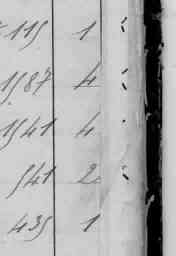 115 1
1587 4
1541 4
541 2
435 1